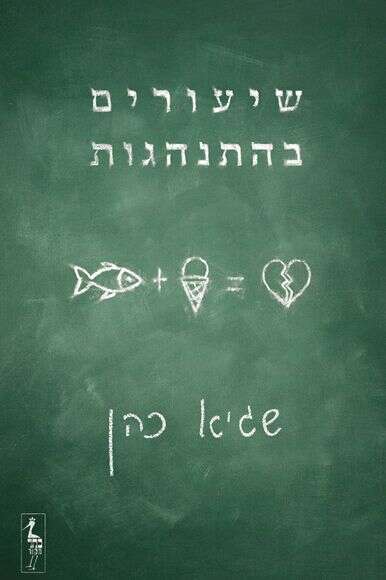 שיעורים
בהתנהגות
+ =
שגיא כהן